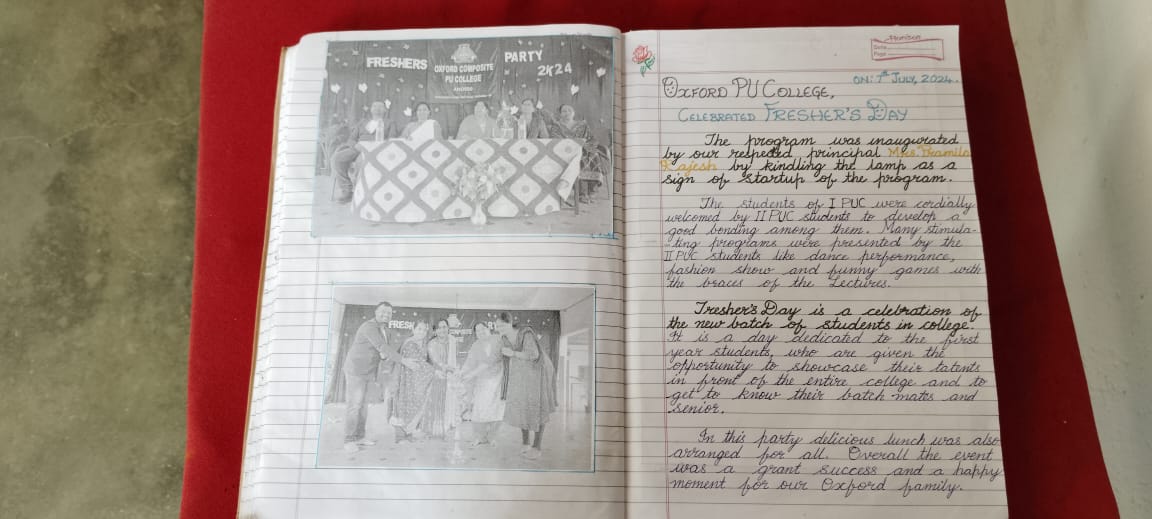 FRESHERS
PARTY
2K24
OXFORD COMPOSITE
PU COLLEGE
FRESH
Date
Page
ON: 7th JULY, 2024.
OXFORD PU COLLEGE,
CELEBRATED FRESHER'S DAY
The program was inaugurated
by our respected principal Mrs. Pramila
Rajesh by kindling the lamp as a
sign of startup of the program.
The students of I PUC were cordially
welcomed by II PUC students to develop a
good bonding among them. Many stimula-
-ting programs were presented by the
II PUC students like dance performance,
fashion show and funny games with
the braces of the Lectures.
Fresher's Day is a celebration of
the new batch of students in college.
It is a day dedicated to the first
year students, who are given the
opportunity to showcase their talents
in front of the entire college and to
get to know their batch mates and
senior.
In this party delicious lunch was also
arranged for all. Overall the event
was a grant success and a happy
moment for our Oxford family.